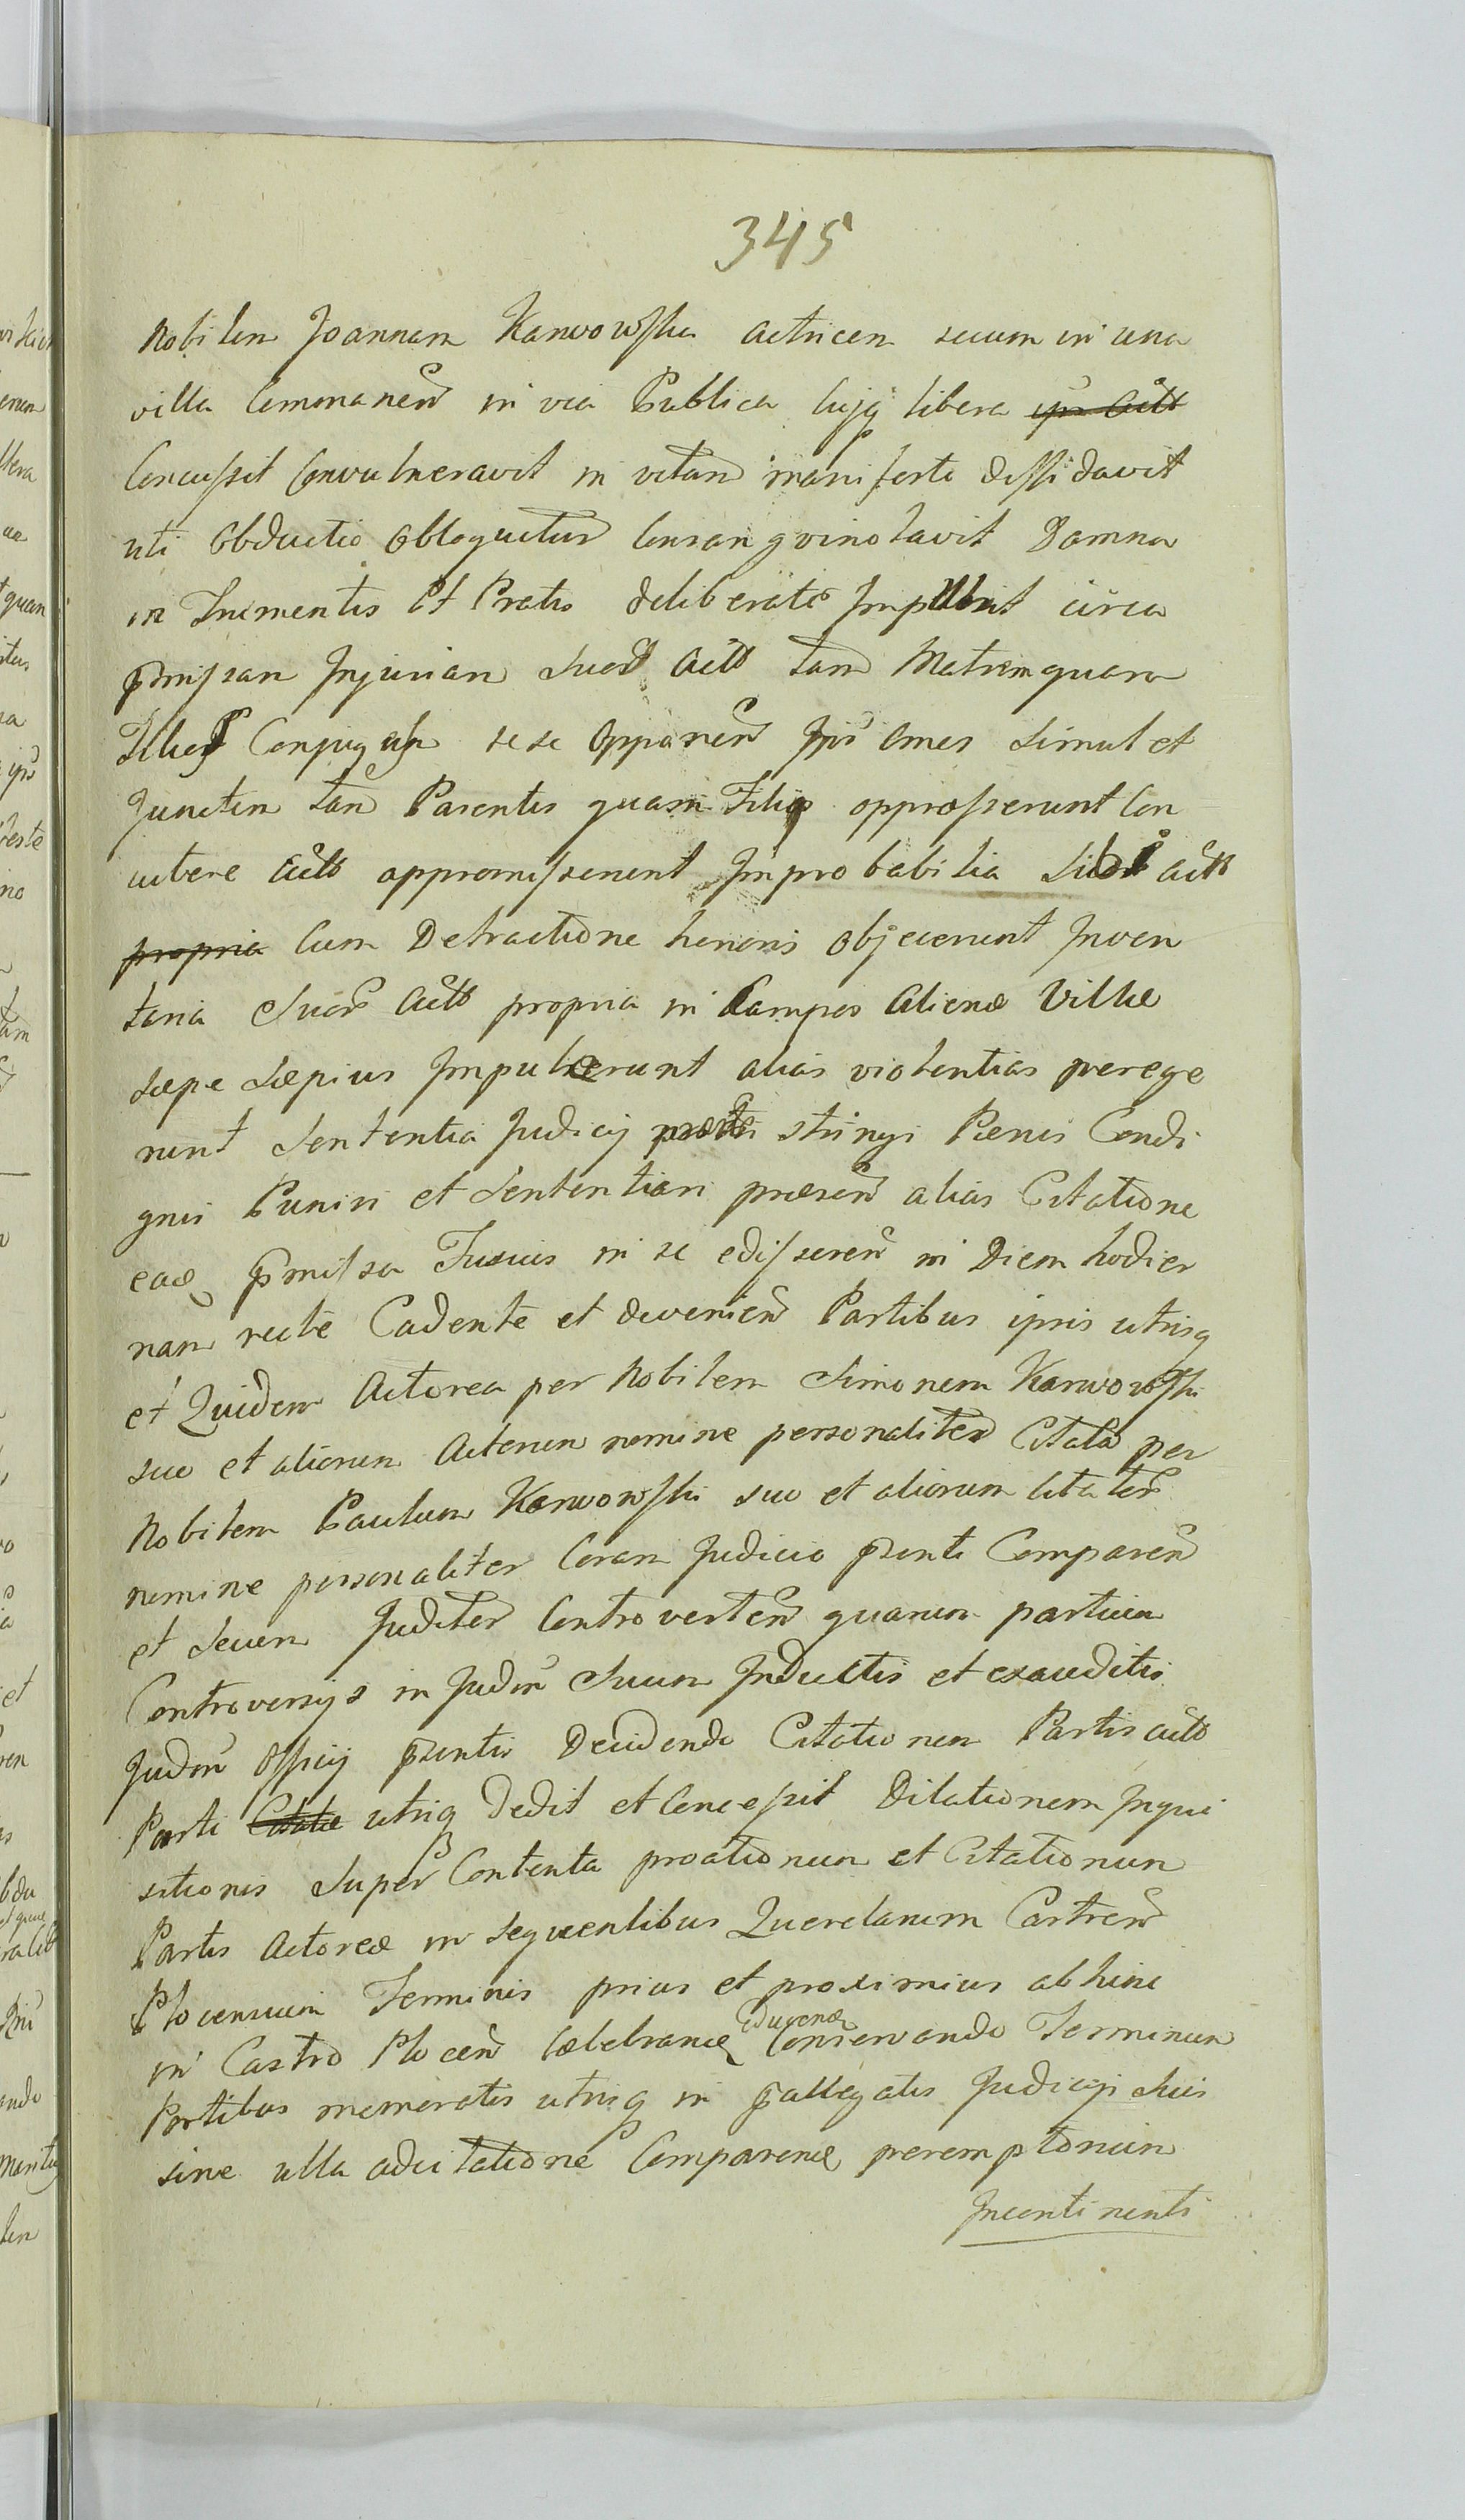 345
Nobilem Joannam Karwowska actricem secum in una
villa Commanen in via Publica cujq libera ips Actt
Concussit Convulneravit in vitam manifeste diffidavit
uti Obductio Obloquetur Consangvinolavit Damna
in Frumentis et Pratis deliberate Impulit circa
pmissan Injurian Suor Actt tam Matrem quam
Illius Conjugem sese Opponen Ipsi omes Simul et
Junctim tam Parentes quam Filij oppresserunt Con
cutere Actt appromisserunt Improbabilia Sibi Actt
propria Cum Detractione honoris Objecerunt Inven
taria Suor Actt propria in Campos Alienæ Villæ
Sæpe Sæpius Impulerunt alias violentias perege
runt Sententia Judicij stringi Pænis Condi
gnis Puniri et Sententiam præsen alias Citatione
ead pmissa Fusius in se edisseren in Diem hodier
nam recte Cadente et devenien Partibus ipsis utrisq
et Quidem Actorea per Nobilem Simonem Karwowski
suo et aliorum Actorum nomine personaliter Citata per
Nobilem Paulum Karwowski suo et aliorum Citator
nomine personaliter Coram Judicio psenti Comparen
et Secum Juditer Controverten quarum partium
Controversijs in Judm Suum Inductis et exauditis
Judm Officij psentis Decidendo Citationem Partis Actt
Parti Citatæ utriq Dedit et Concessit Dilationem Inqui
sitionis Super Contenta proationum et Citationum
Partis Actoreæ in sequentibus Querelarum Castren
Plocensium Terminis prius et proximius abhinc
in Castro Plocen Celebran Conservando Terminum
Partibus memoratis utrisq in pallegatis Judicijs Suis
sine ulla adcitatione Comparend peremptorium
Incontinenti